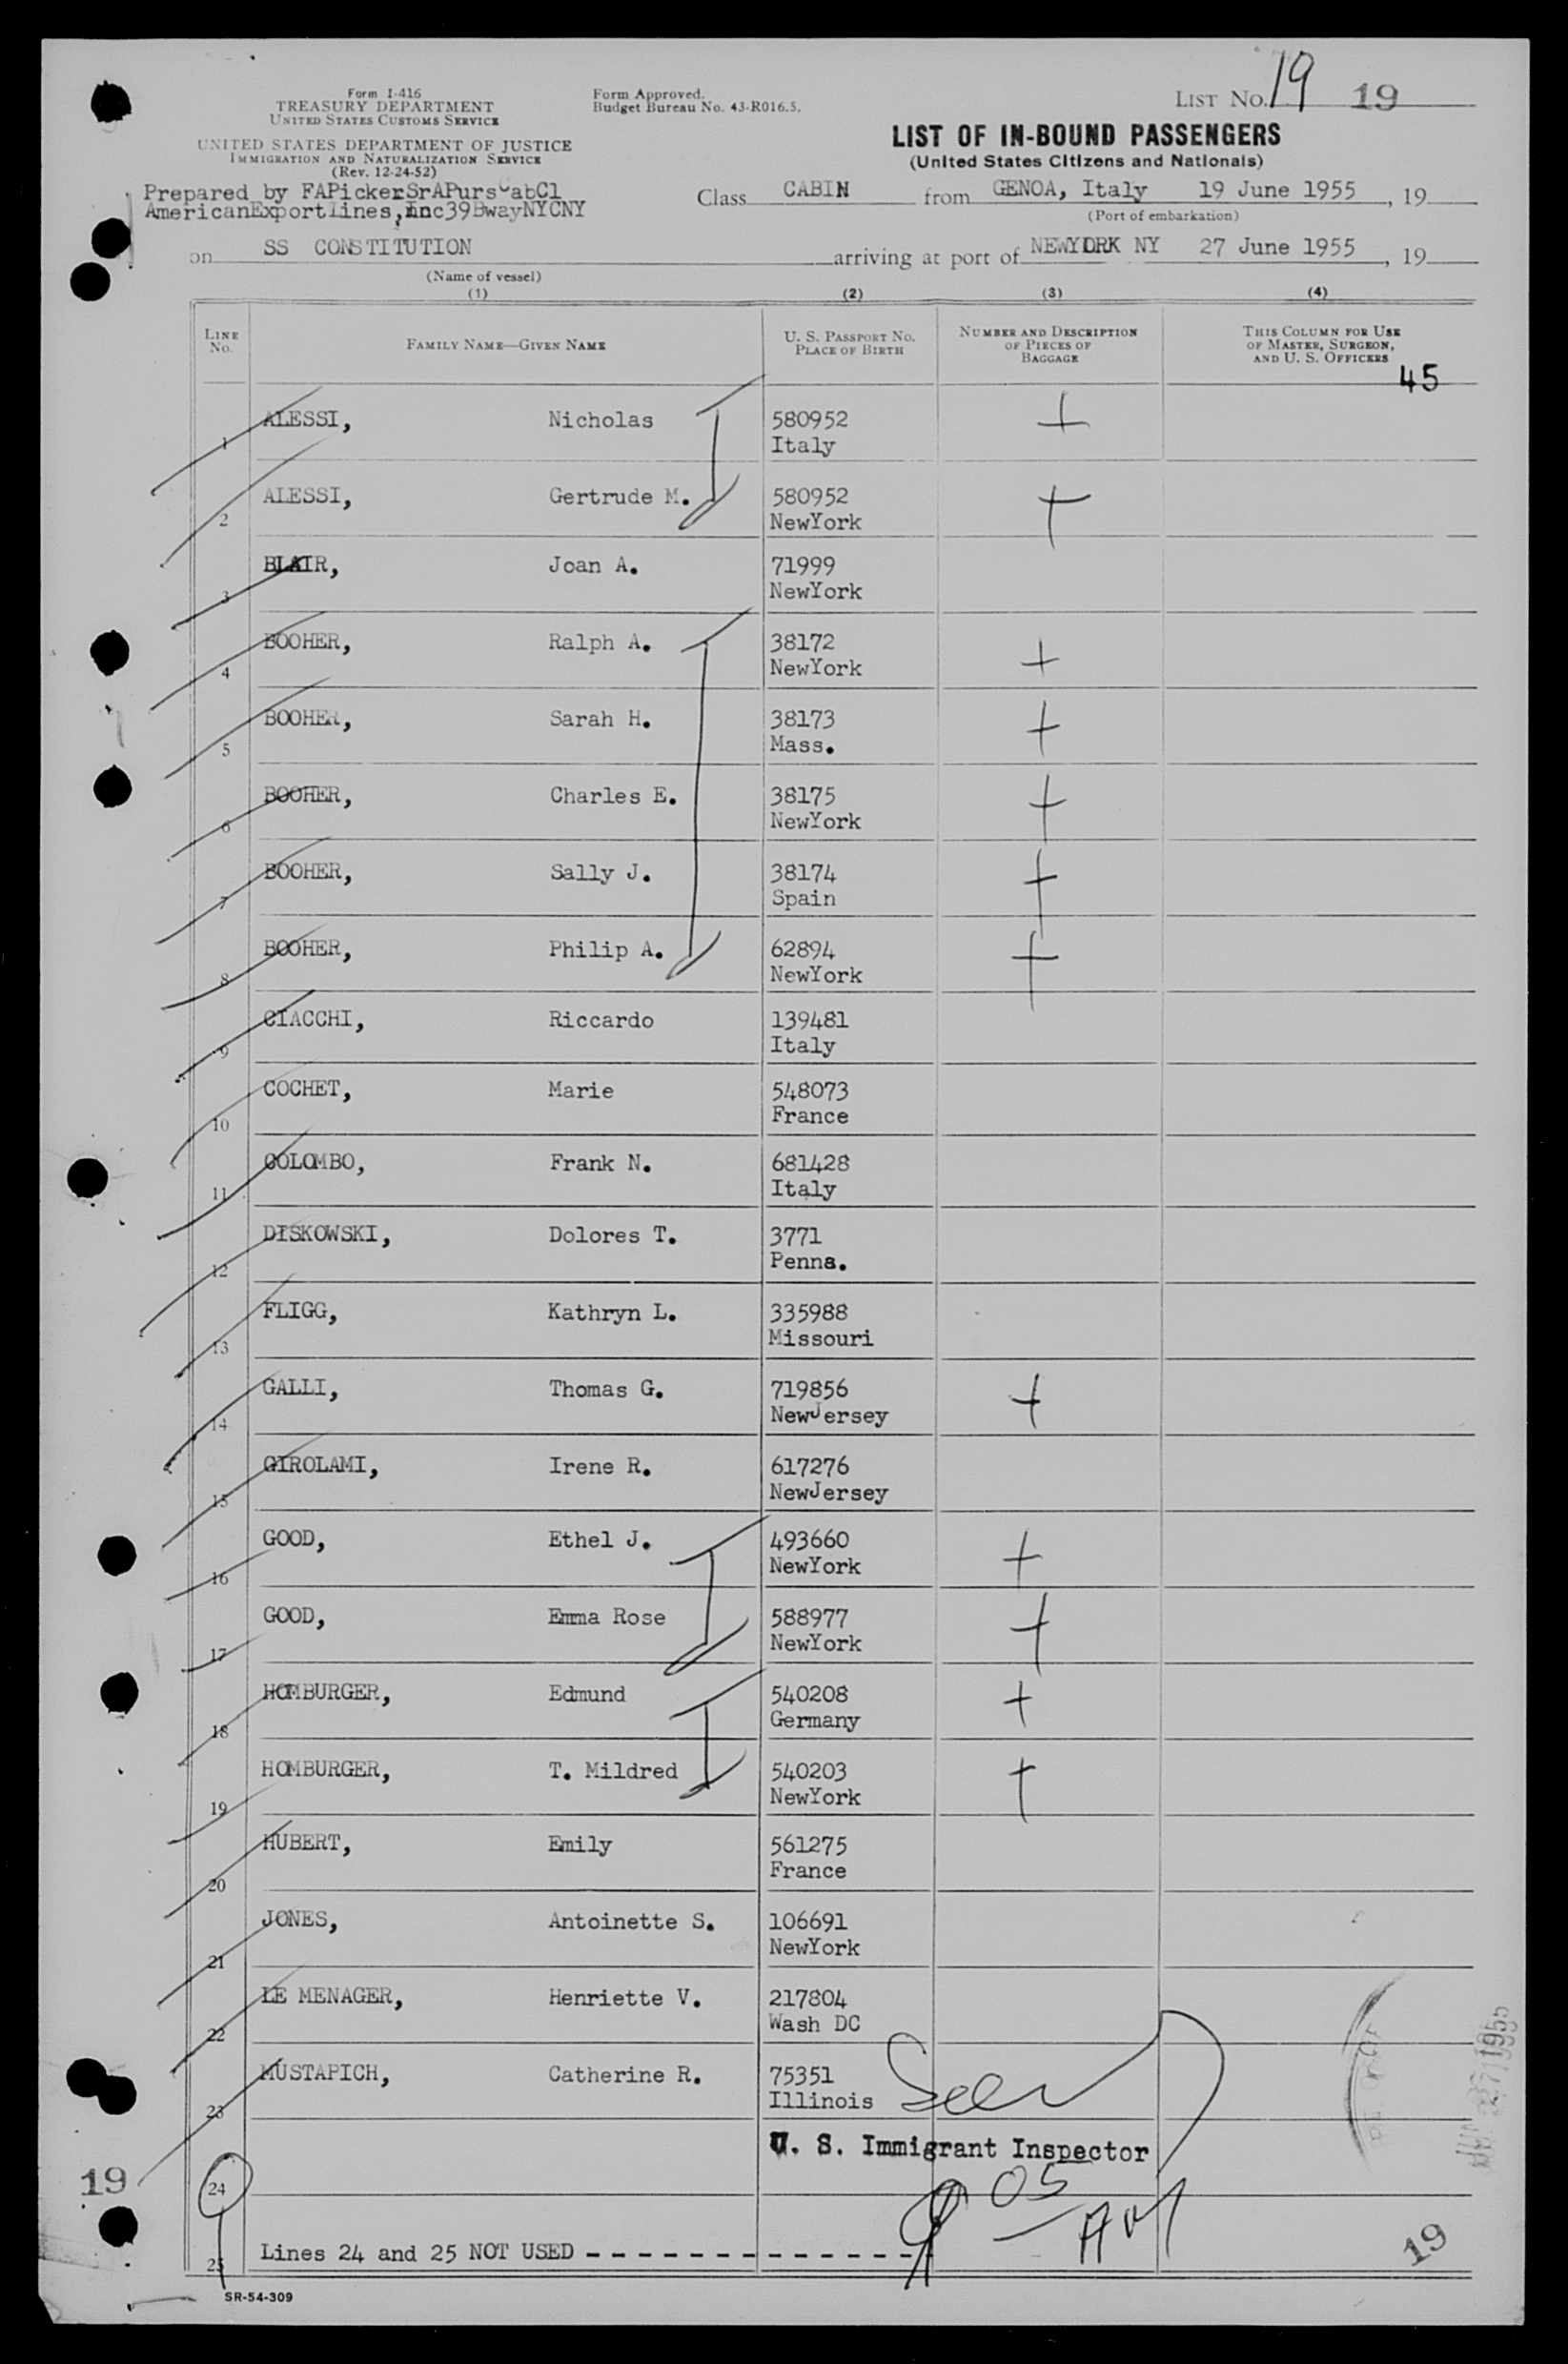 Form I-416
TREASURY DEPARTMENT
UNITED STATES CUSTOMS SERVICE
UNITED STATES DEPARTMENT OF JUSTICE
IMMIGRATION AND NATURALIZATION SERVICE
(Rev. 12-24-52)
Form Approved.
Budget Bureau No. 43-R016.5.
LIST NO. 19 19
LIST OF IN-BOUND PASSENGERS
(United States Citizens and Nationals)
Prepared by FAPickerSrAPursCabCl
AmericanExportLines, Inc39BwayNYCNY
Class CABIN from GENOA, Italy 19 June 1955, 19
(Port of embarkation)
on SS CONSTITUTION arriving at port of NEWYORK NY 27 June 1955, 19
(Name of vessel)
(1) (2) (3) (4)
LINE NO.
FAMILY NAME—GIVEN NAME
U. S. PASSPORT NO.
PLACE OF BIRTH
NUMBER AND DESCRIPTION
OF PIECES OF
BAGGAGE
THIS COLUMN FOR USE
OF MASTER, SURGEON,
AND U. S. OFFICERS
45
1 ALESSI, Nicholas 580952
Italy
2 ALESSI, Gertrude M. 580952
NewYork
3 BLAIR, Joan A. 71999
NewYork
4 BOOHER, Ralph A. 38172
NewYork
5 BOOHER, Sarah H. 38173
Mass.
6 BOOHER, Charles E. 38175
NewYork
7 BOOHER, Sally J. 38174
Spain
8 BOOHER, Philip A. 62894
NewYork
9 CIACCHI, Riccardo 139481
Italy
10 COCHET, Marie 548073
France
11 COLOMBO, Frank N. 681428
Italy
12 DISKOWSKI, Dolores T. 3771
Penna.
13 FLIGG, Kathryn L. 335988
Missouri
14 GALLI, Thomas G. 719856
NewJersey
15 GIROLAMI, Irene R. 617276
NewJersey
16 GOOD, Ethel J. 493660
NewYork
17 GOOD, Emma Rose 588977
NewYork
18 HOMBURGER, Edmund 540208
Germany
19 HOMBURGER, T. Mildred 540203
NewYork
20 HUBERT, Emily 561275
France
21 JONES, Antoinette S. 106691
NewYork
22 LE MENAGER, Henriette V. 217804
Wash DC
23 MUSTAPICH, Catherine R. 75351
Illinois
U. S. Immigrant Inspector
19
24
05
25 Lines 24 and 25 NOT USED - - - - - - - - - - - - - -
19
SR-54-309